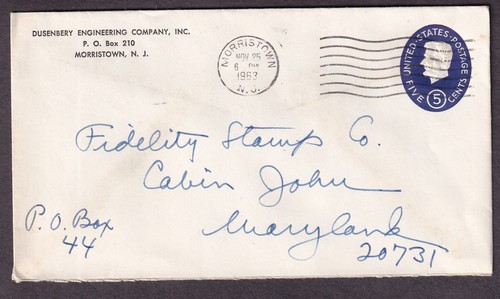 DUSENBERY ENGINEERING COMPANY, INC.
P. O. Box 210
MORRISTOWN, N. J.
MORRISTOWN
NOV 25
6 PM
1963
N. J.
UNITED STATES POSTAGE
FIVE 5 CENTS
Fidelity Stamp Co.
Cabin John
Maryland
20731
P. O. Box
44